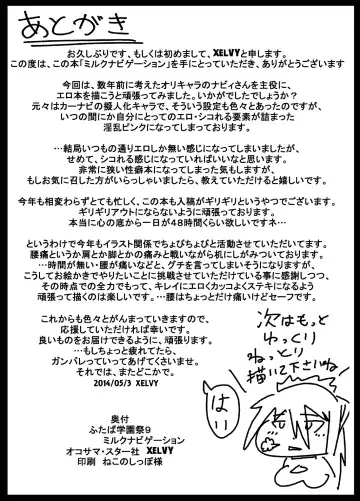 あとがき
お久しぶりです、もしくは初めまして、XELVYと申します。
この度は、この本「ミルクナビゲーション」を手にとっていただき、ありがとうございます
今回は、数年前に考えたオリキャラのナビィさんを主役に、
エロ本を描こうと頑張ってみました。いかがでしたでしょうか?
元々はカーナビの擬人化キャラで、そういう設定も色々とあったのですが、
いつの間にか自分にとってのエロ・シコれる要素が詰まった
淫乱ピンクになってしまっております。
…結局いつもの通りエロしか無い感じになってしまいましたが、
せめて、シコれる感じになっていればいいなと思います。
非常に狭い性癖本になってしまった気もしますが、
もしお気に召した方がいらっしゃいましたら、教えていただけると嬉しいです。
今年も相変わらずとても忙しく、この本も入稿がギリギリというやつでございます。
ギリギリアウトにならないように頑張っております。
本当に心の底から一日が48時間くらい欲しいですネ…
というわけで今年もイラスト関係でちょびちょびと活動させていただいてます。
腰痛というか肩とか脚とかの痛みと戦いながら机にしがみついております。
…時間が無い・腰が痛いなどと、グチを言ってしまいそうになりますが、
こうしてお絵かきでやりたいことに挑戦させていただけている事に感謝しつつ、
その時点での全力でもって、キレイにエロくカッコよくステキになるよう
頑張って描くのは楽しいです。…腰はちょっとだけ痛いけどセーフです。
これからも色々とがんまっていきますので、
応援していただければ幸いです。
良いものをお届けできるように、頑張ります。
…もしちょっと疲れてたら、
ガンバレっていってあげてくださいませ。
それでは、またどこかで。
2014/05/3 XELVY
次はもっと
ゆっくり
ねっとり
描いて下さいね
はい
奥付
ふたば学園祭9
ミルクナビゲーション
オコサマ・スター社 XELVY
印刷 ねこのしっぽ様